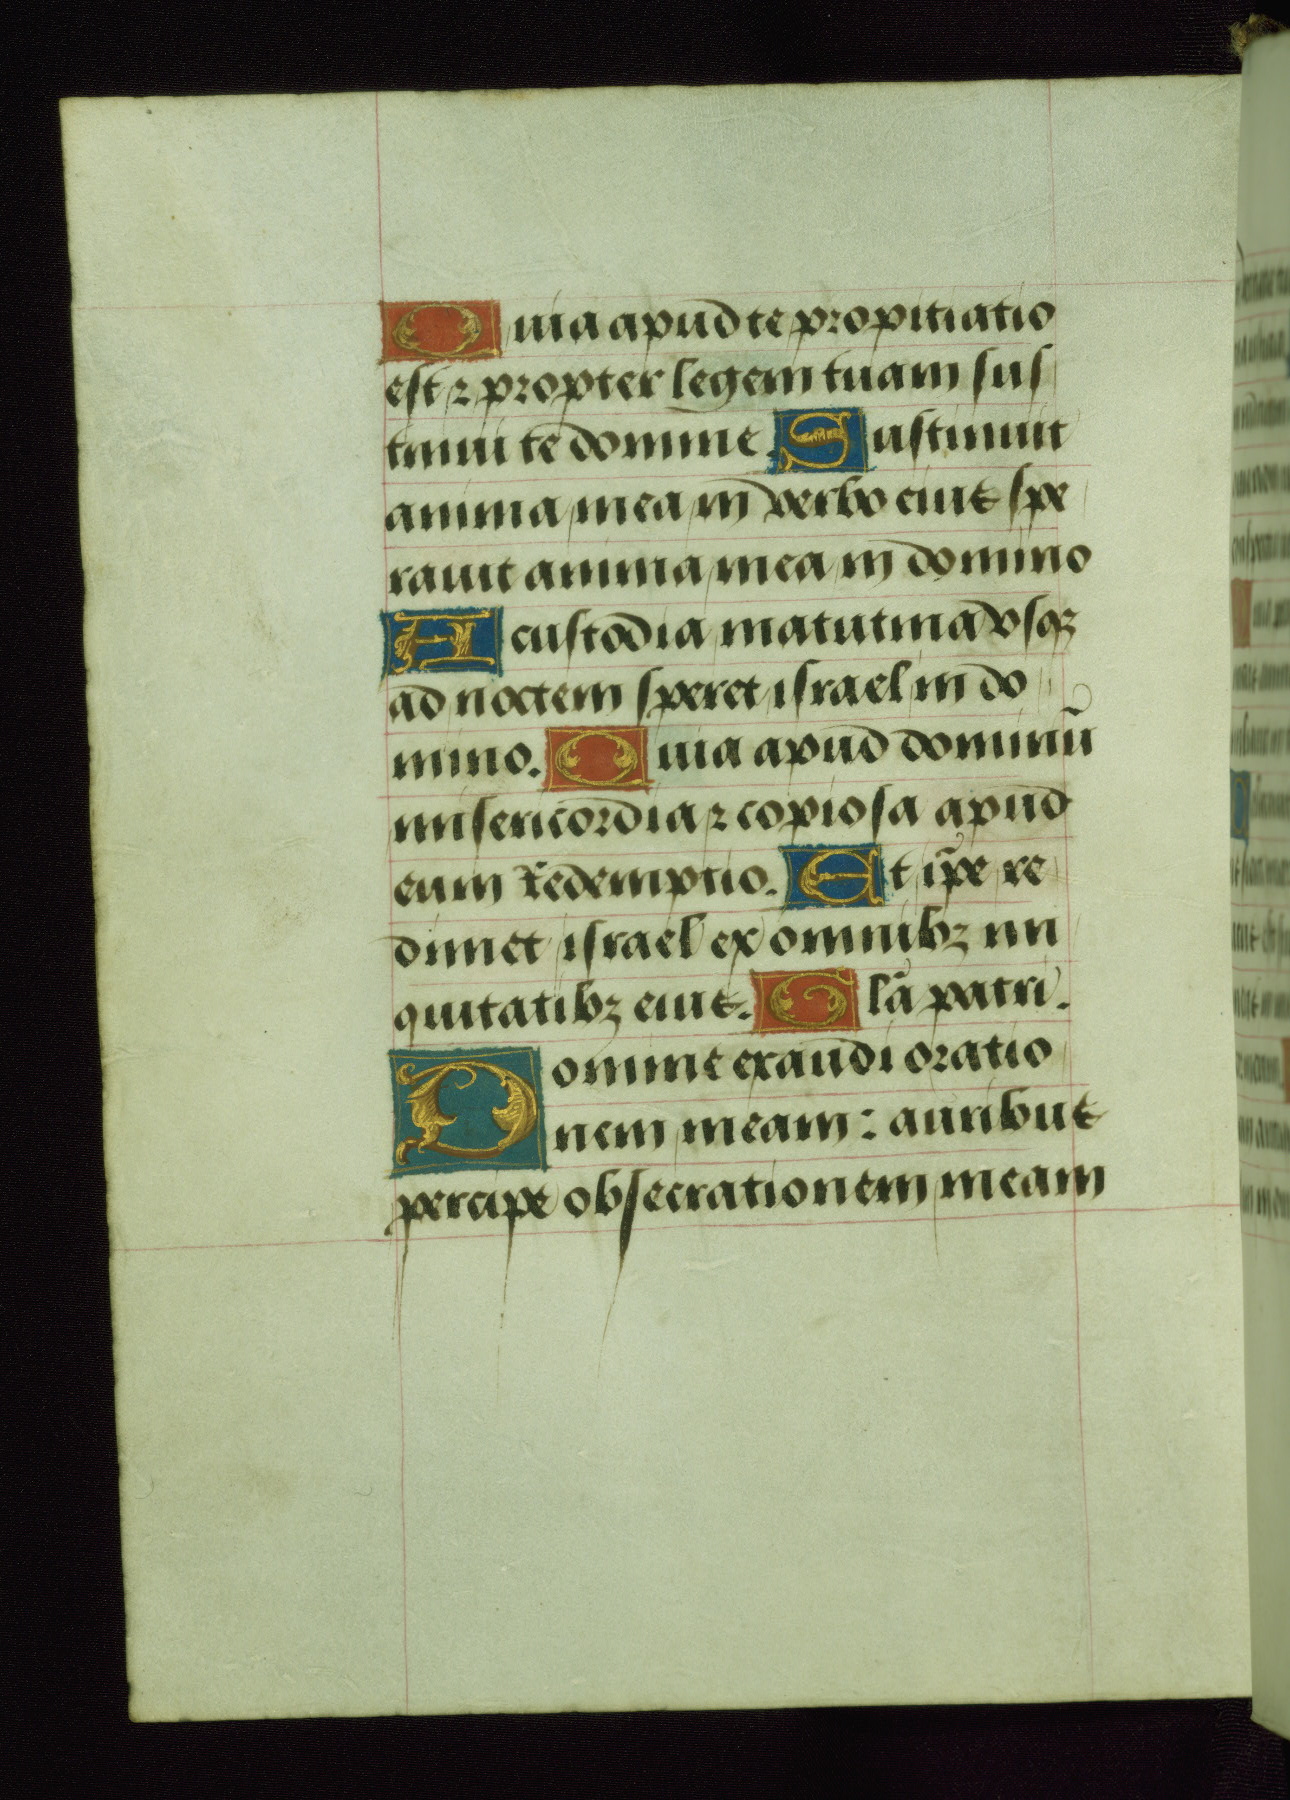 Quia apud te propitiatio
est ⁊ propter legem tuam sus
tinui te domine. Sustinuit
anima mea in verbo eius spe
rauit anima mea in domino
A custodia matutina vsqꝫ
ad noctem speret israel in do
mino. Quia apud dominū
misericordia ⁊ copiosa apud
eum redemptio. Et ip̄e re
dimet israel ex omnibꝫ ini
quitatibꝫ eius. Gl̄a patri.
Domine exaudi oratio
nem meam: auribus
percipe obsecrationem meam